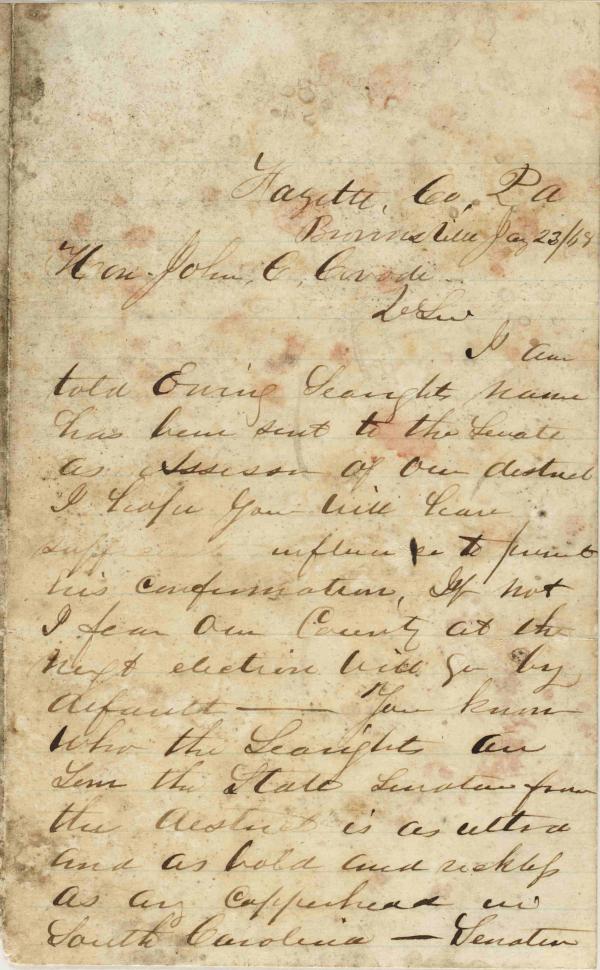 Fayette, Co, Pa
Brownsville Jany 23/68
Hon. John, C, Covode
D Sir
I am
told Ewing Searights name
has been sent to the Senate
as Assessor of our destrict
I hope you will have
sufficient influence to prevent
his confirmation, If not
I fear our County at the
next election will go by
default — You know
who the Searights are
the State Senator from
the destrict is as ultra
and as bold and reckless
as any Copperhead in
South Carolina — Senator